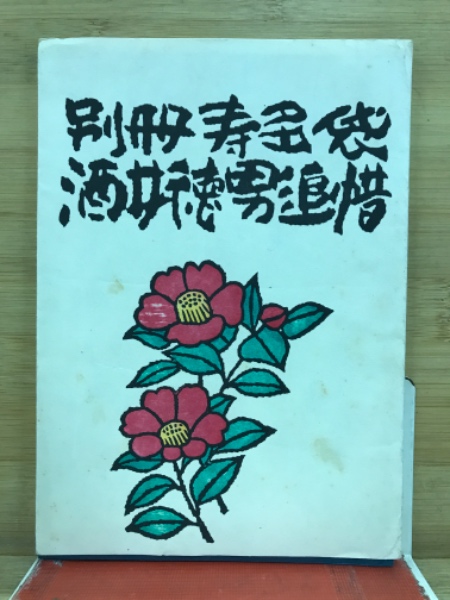 別冊 寿多袋
酒井徳男追惜